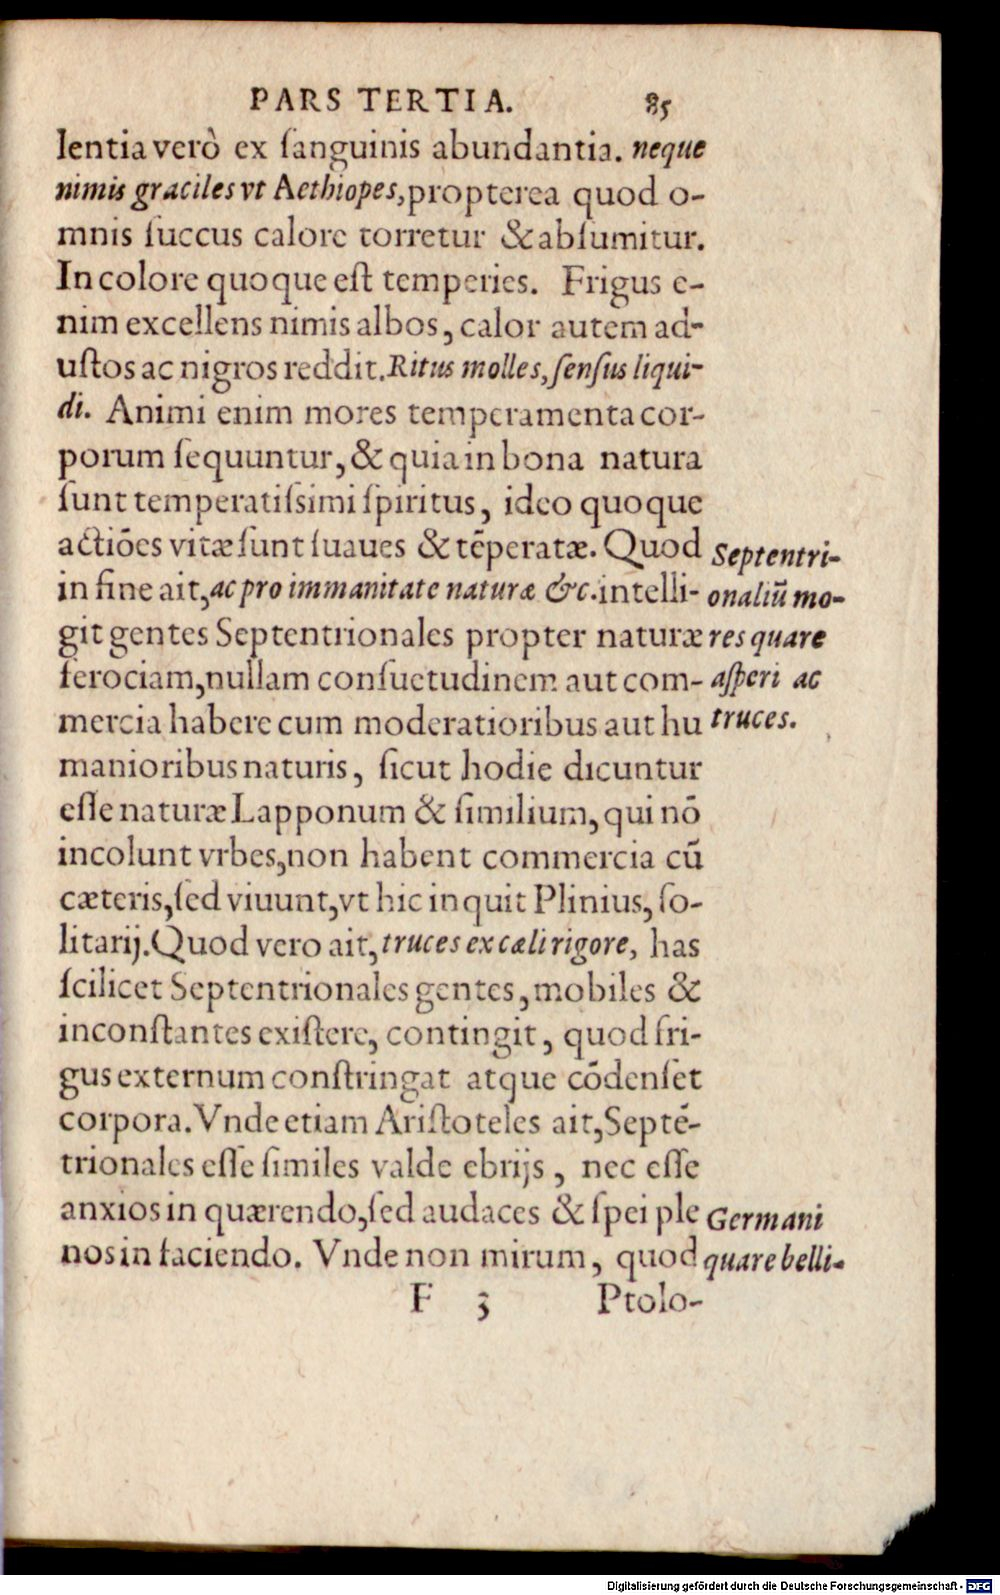 PARS TERTIA. 85
lentia verò ex ſanguinis abundantia. neque
nimis graciles vt Aethiopes, propterea quod o-
mnis ſuccus calore torretur & abſumitur.
In colore quoque eſt temperies. Frigus e-
nim excellens nimis albos, calor autem ad-
uſtos ac nigros reddit. Ritus molles, ſenſus liqui-
di. Animi enim mores temperamenta cor-
porum ſequuntur, & quia in bona natura
ſunt temperatiſsimi ſpiritus, ideo quoque
actiōes vitæ ſunt ſuaues & tēperatæ. Quod
in fine ait, ac pro immanitate naturæ &c. intelli-
git gentes Septentrionales propter naturæ
ferociam, nullam conſuetudinem aut com-
mercia habere cum moderatioribus aut hu
manioribus naturis, ſicut hodie dicuntur
eſſe naturæ Lapponum & ſimilium, qui nō
incolunt vrbes, non habent commercia cū
cæteris, ſed viuunt, vt hic inquit Plinius, ſo-
litarij. Quod vero ait, truces ex cæli rigore, has
ſcilicet Septentrionales gentes, mobiles &
inconſtantes exiſtere, contingit, quod fri-
gus externum conſtringat atque cōdenſet
corpora. Vnde etiam Ariſtoteles ait, Septē-
trionales eſſe ſimiles valde ebrijs, nec eſſe
anxios in quærendo, ſed audaces & ſpei ple
nos in faciendo. Vnde non mirum, quod
F 3 Ptolo-
Septentri-
onaliū mo-
res quare
aſperi ac
truces.
Germani
quare belli-
Digitalisierung gefördert durch die Deutsche Forschungsgemeinschaft - DFG